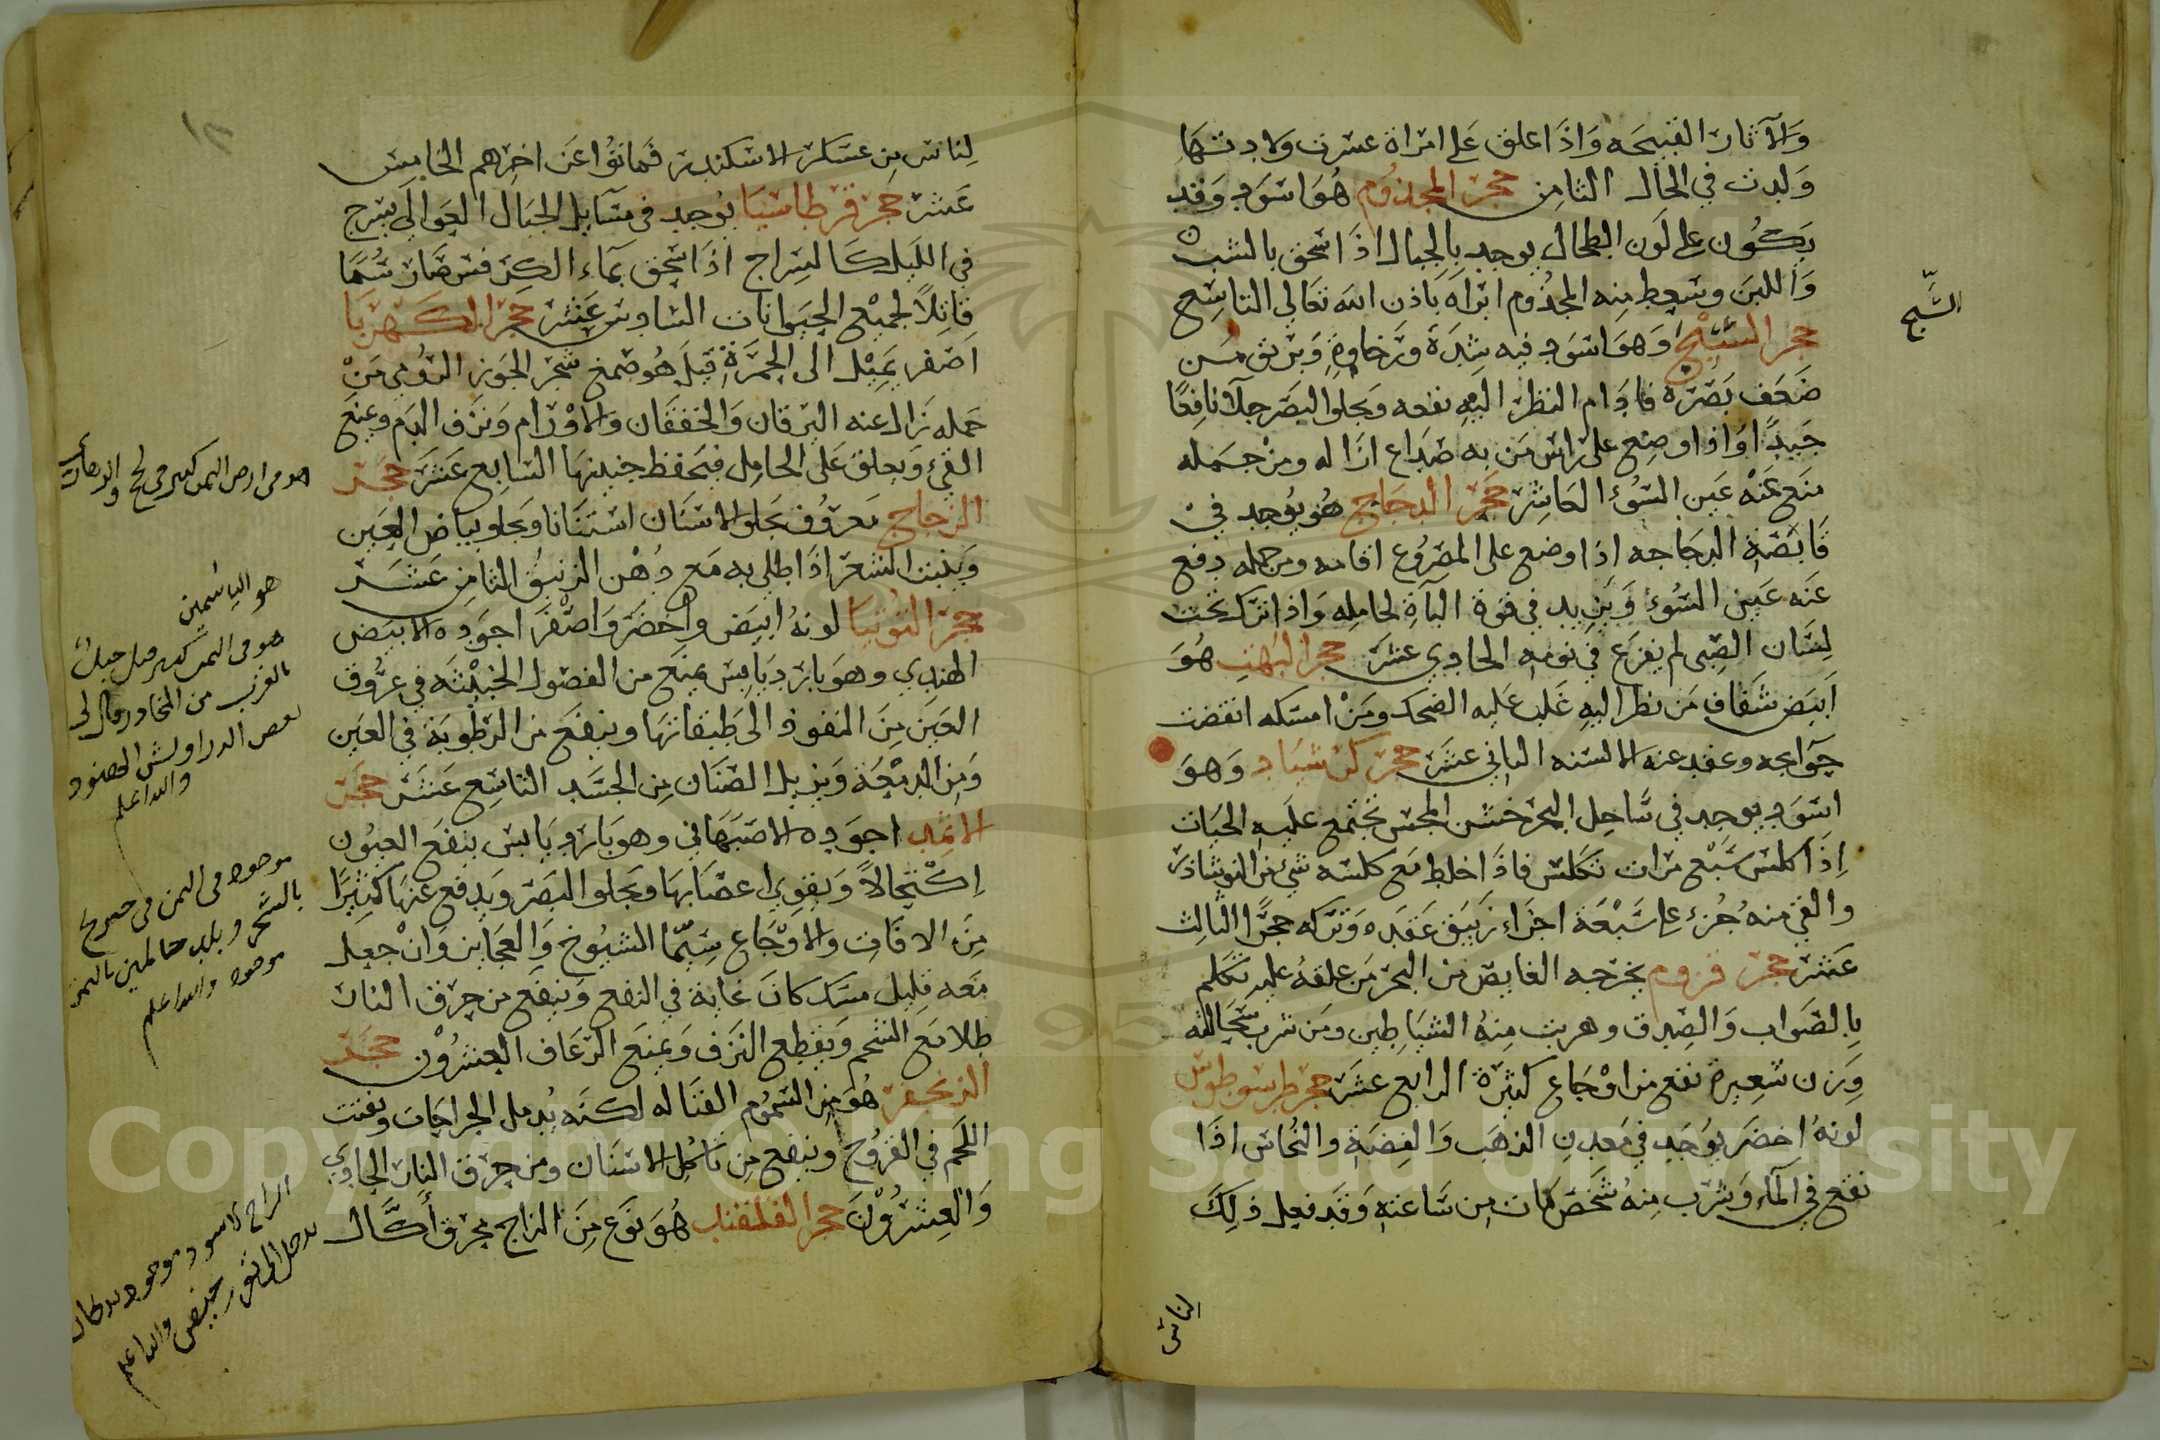 والآثار القبيحه واذا علق على امراة عسرت ولادتها
ولدت في الحال الثامن حجر المجذوم هو اسود وقد
يكون على لون الطحال يوجد بالجبال اذا سحق بالشب
واللبن وسعط منه المجذوم ابراه باذن الله تعالي التاسع
حجر السبج وهو اسود فيه شدة ورخاوة وبريق من
ضعف بصره فادام النظر اليه نفعه ويجلوا البصر جلآ نافعا
جيدا واذا وضع على راس من به صداع ازاله ومن حمله
منع عنه عين السوء العاشر حجر الدجاج هو يوجد في
قانصة الدجاجه اذا وضع على المصروع افاقه ومن حمله دفع
عنه عين السوء ويزيد في قوة الباة لحامله واذا ترك تحت
لسان الصبى لم يفزع في نومه الحادي عشر حجر البهت هو
ابيض شفاف من نظر اليه غلب عليه الضحك ومن امسكه انقضت
حوايجه وعقد عنه الالسنه الثاني عشر حجر كرسباد وهو
اسود يوجد في ساحل البحر خشن المجس تجتمع عليه الحيات
اذا كلس سبع مرات تكلس فاذا خلط مع كلسه شئ من النوشاذر
والقي منه جزء على سبعة اجزاء زيبق عقده وتركه حجرا الثالث
عشر حجر فروم يخرجه الغايص من البحر من علقه عليه تكلم
بالصواب والصدق وهربت منه الشياطين ومن شرب سحالته
وزن شعيرة نفع من اوجاع كثيرة الرابع عشر حجر طرسوطوس
لونه اخضر يوجد في معدن الذهب والفضة والنحاس اذا
نقع في المآء وشرب منه شخص مات من ساعته وقد فعل ذلك
لناس
السبج
لناس من عسكر الاسكندر فماتوا عن اخرهم الخامس
عشر حجر قرطاسيا يوجد في مسايل الجبال العوالي يسرج
في الليل كالسراج اذا سحق بماء الكرفس صار سما
قاتلا لجميع الحيوانات السادس عشر حجر الكهربا
اصفر يميل الى الحمرة قيل هو صمغ شجر الجوز الرومي من
حمله زال عنه اليرقان والخفقان والاورام ونزف الدم ويمنع
القئ ويعلق على الحامل فيحفظ جنينها السابع عشر حجر
الزجاج معروف يجلو الاسنان استنانا ويجلو بياض العين
وينبت الشعر اذا طلي به مع دهن الزنبق الثامن عشر
حجر التوتيا لونه ابيض واخضر واصفر اجوده الابيض
الهندي وهو بارد يابس يمنع من الفضول الخبيثه في عروق
العين من النفوذ الى طبقاتها وينفع من الرطوبة في العين
ومن الدمعة ويزيل الصنان من الجسد التاسع عشر حجر
الاثمد اجوده الاصبهاني وهو بارد يابس ينفع العيون
اكتحالا ويقوي اعصابها ويجلو البصر ويدفع عنها كثيرا
من الافات والاوجاع سيما الشيوخ والعجايز وان جعل
معه قليل مسك كان غاية في النفع وينفع من حرق النار
طلا مع الشحم ويقطع النزف ويمنع الرعاف العشرون حجر
الزنجفر هو من السموم القتاله لكنه يدمل الجراحات وينبت
اللحم في القروح وينفع من تاكل الاسنان ومن حرق النار الحاوي
والعشرون حجر القلقنت هو نوع من الزاج محرق أكال
هو في ارض اليمن كثير في لحج
هو الياسمين
هو في اليمن كثير
بالقرب من المخا وقال لي
والله اعلم
موجود في اليمن في
موجود والله اعلم
الزاج الاسود موجود
والله اعلم
Copyright © King Saud University